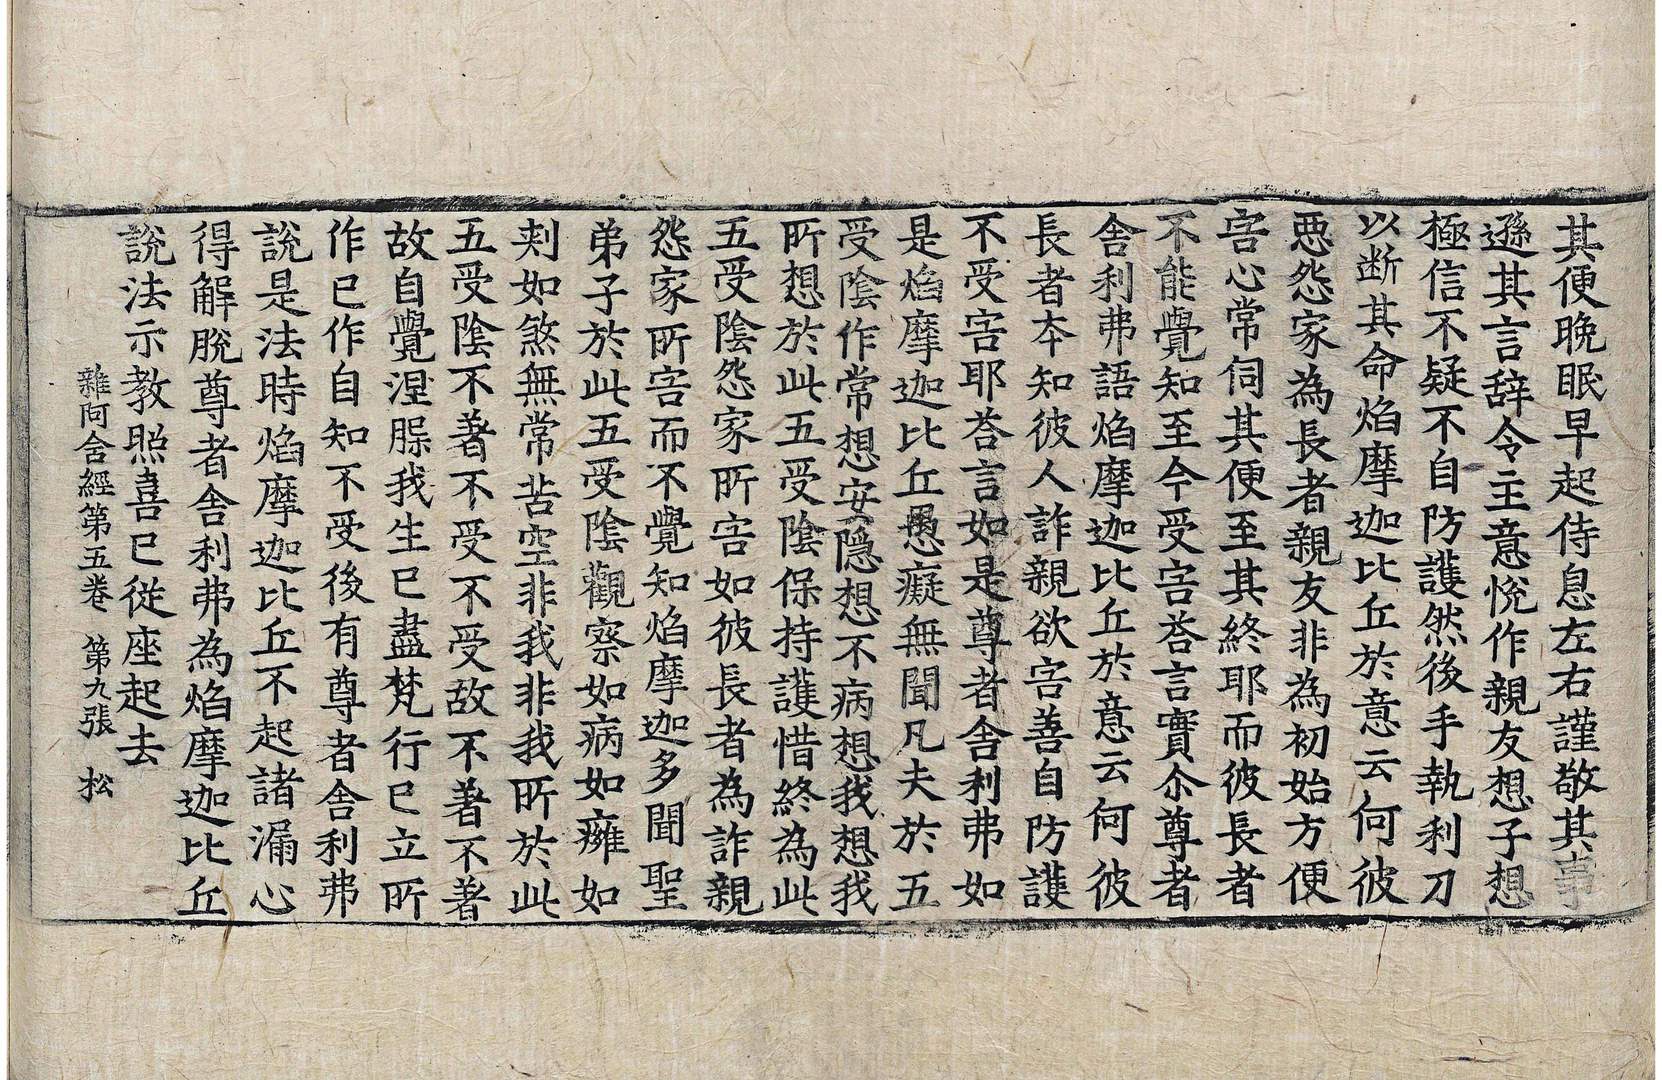 其便晚眠早起侍息左右謹敬其事
遜其言辞令主意悅作親友想子想
極信不疑不自防護然後手執利刀
以断其命焰摩迦比丘於意云何彼
惡怨家為長者親友非為初始方便
害心常伺其便至其終耶而彼長者
不能覺知至今受害荅言實尒尊者
舍利弗語焰摩迦比丘於意云何彼
長者本知彼人詐親欲害善自防護
不受害耶荅言如是尊者舍利弗如
是焰摩迦比丘愚癡無聞凡夫於五
受陰作常想安隱想不病想我想我
所想於此五受陰保持護惜終為此
五受陰怨家所害如彼長者為詐親
怨家所害而不覺知焰摩迦多聞聖
弟子於此五受陰觀察如病如癰如
刾如煞無常苦空非我非我所於此
五受陰不著不受不受故不著不著
故自覺涅槃我生已盡梵行已立所
作已作自知不受後有尊者舍利弗
說是法時焰摩迦比丘不起諸漏心
得解脫尊者舍利弗為焰摩迦比丘
說法示教照喜已從座起去
雜阿含經第五卷 第九張 松